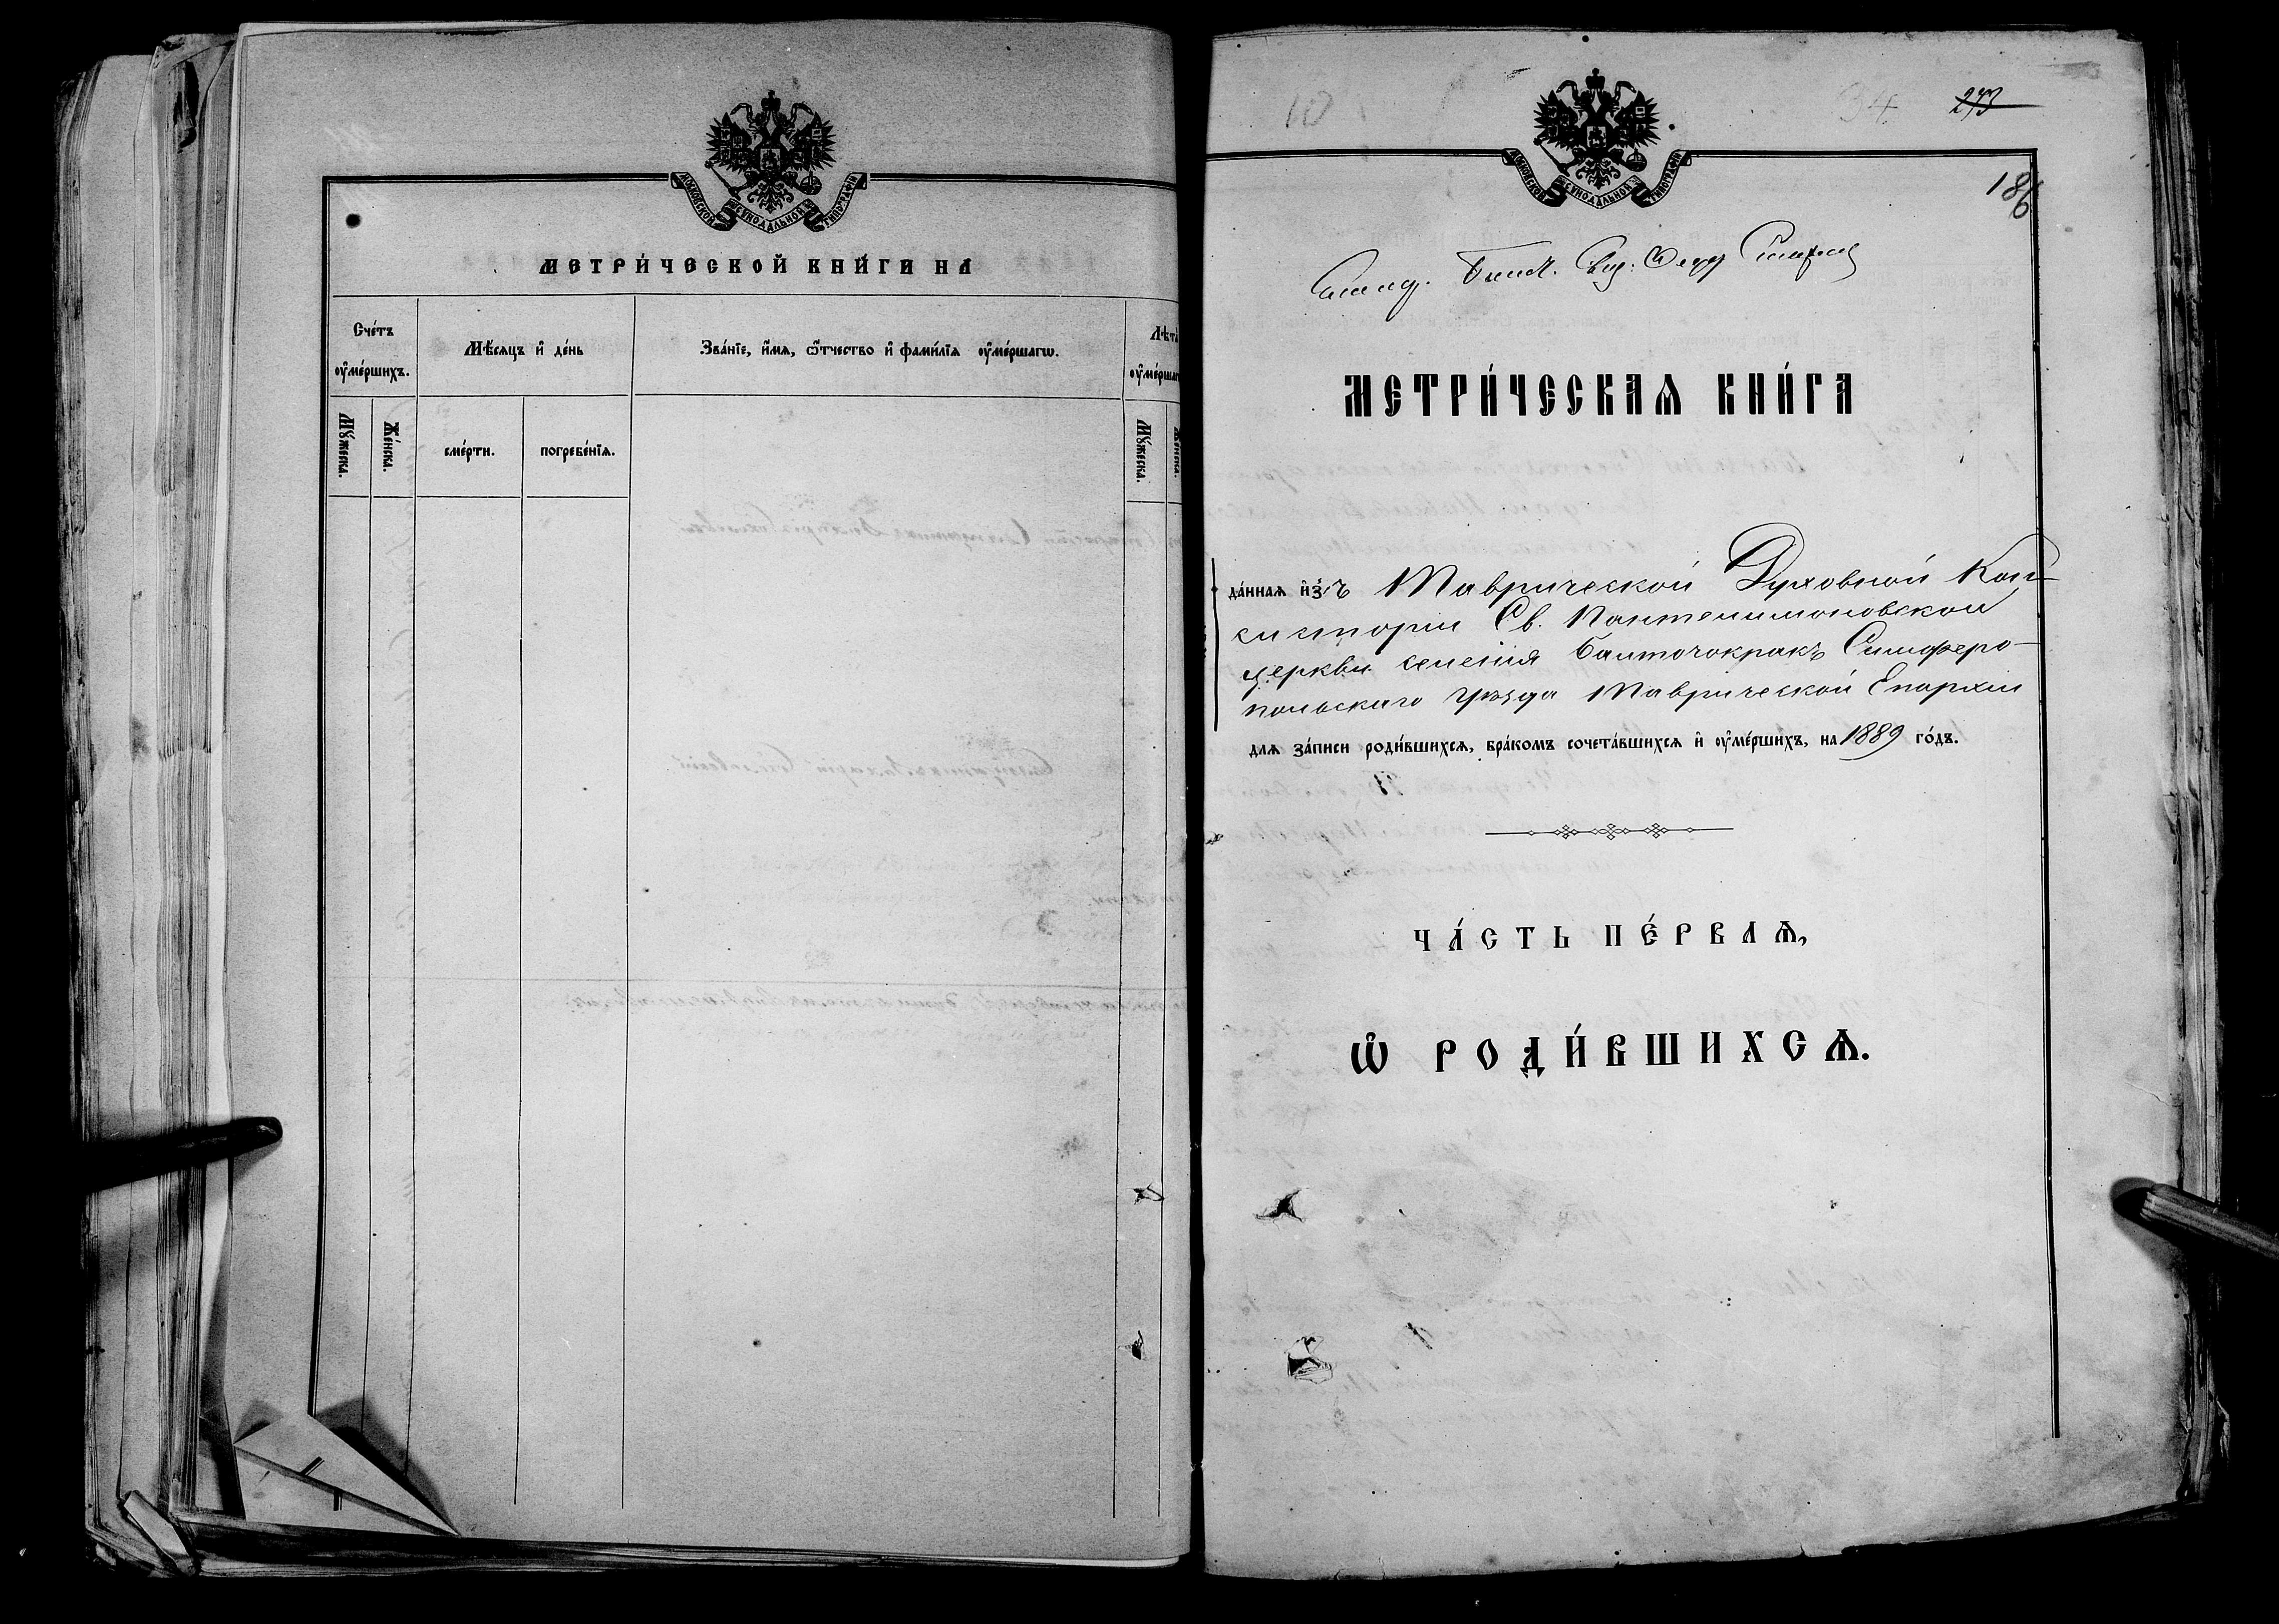 МОСКОВСКОЙ СѴНОДАЛЬНОЙ ТИПОГРАФІИ
МЕТРИ́ЧЕСКОЙ КНИ́ГИ НА
Сче́тъ ᲂу҆ме́ршихъ.
Мѣ́сяцъ и҆ де́нь
Зва́нїе, и҆́мѧ, ѻ҆́тчество и҆ фами́лїѧ ᲂу҆ме́ршагѡ.
Лѣта̀
ᲂу҆ме́ршаг
Мꙋ́жеска.
Же́нска.
сме́рти.
погребе́нїѧ.
Мꙋ́жеска.
Же́нска.
273
186
МОСКОВСКОЙ СѴНОДАЛЬНОЙ ТИПОГРАФІИ
МЕТРИ́ЧЕСКАѦ КНИ́ГА
да́ннаѧ и҆́зъ Таврической Духовной Кон-
систоріи Св. Пантелимоновской
церкви селенія Балточокракъ Симферо-
польскаго Уѣзда Таврической Епархіи
длѧ за́писи роди́вшихсѧ, бра́комъ сочета́вшихсѧ и҆ ᲂу҆ме́ршихъ, на 1889 го́дъ.
ЧА́СТЬ ПЕ́РВАѦ,
Ѡ҆ РОДИ́ВШИХСѦ.